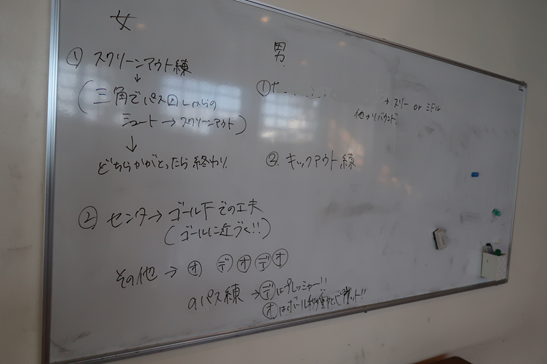 女
① スクリーンアウト練
↓
(三角でパス回しからの
シュート→スクリーンアウト)
↓
どちらかがとったら終わり
② センター→ゴール下での工夫
(ゴールに近づく!!)
その他 → オ デ オ デ オ
のパス練 → デ はプレッシャー!!
オ はボール
男
①
+ スリー or ミドル
他→リバウンド
② キックアウト練